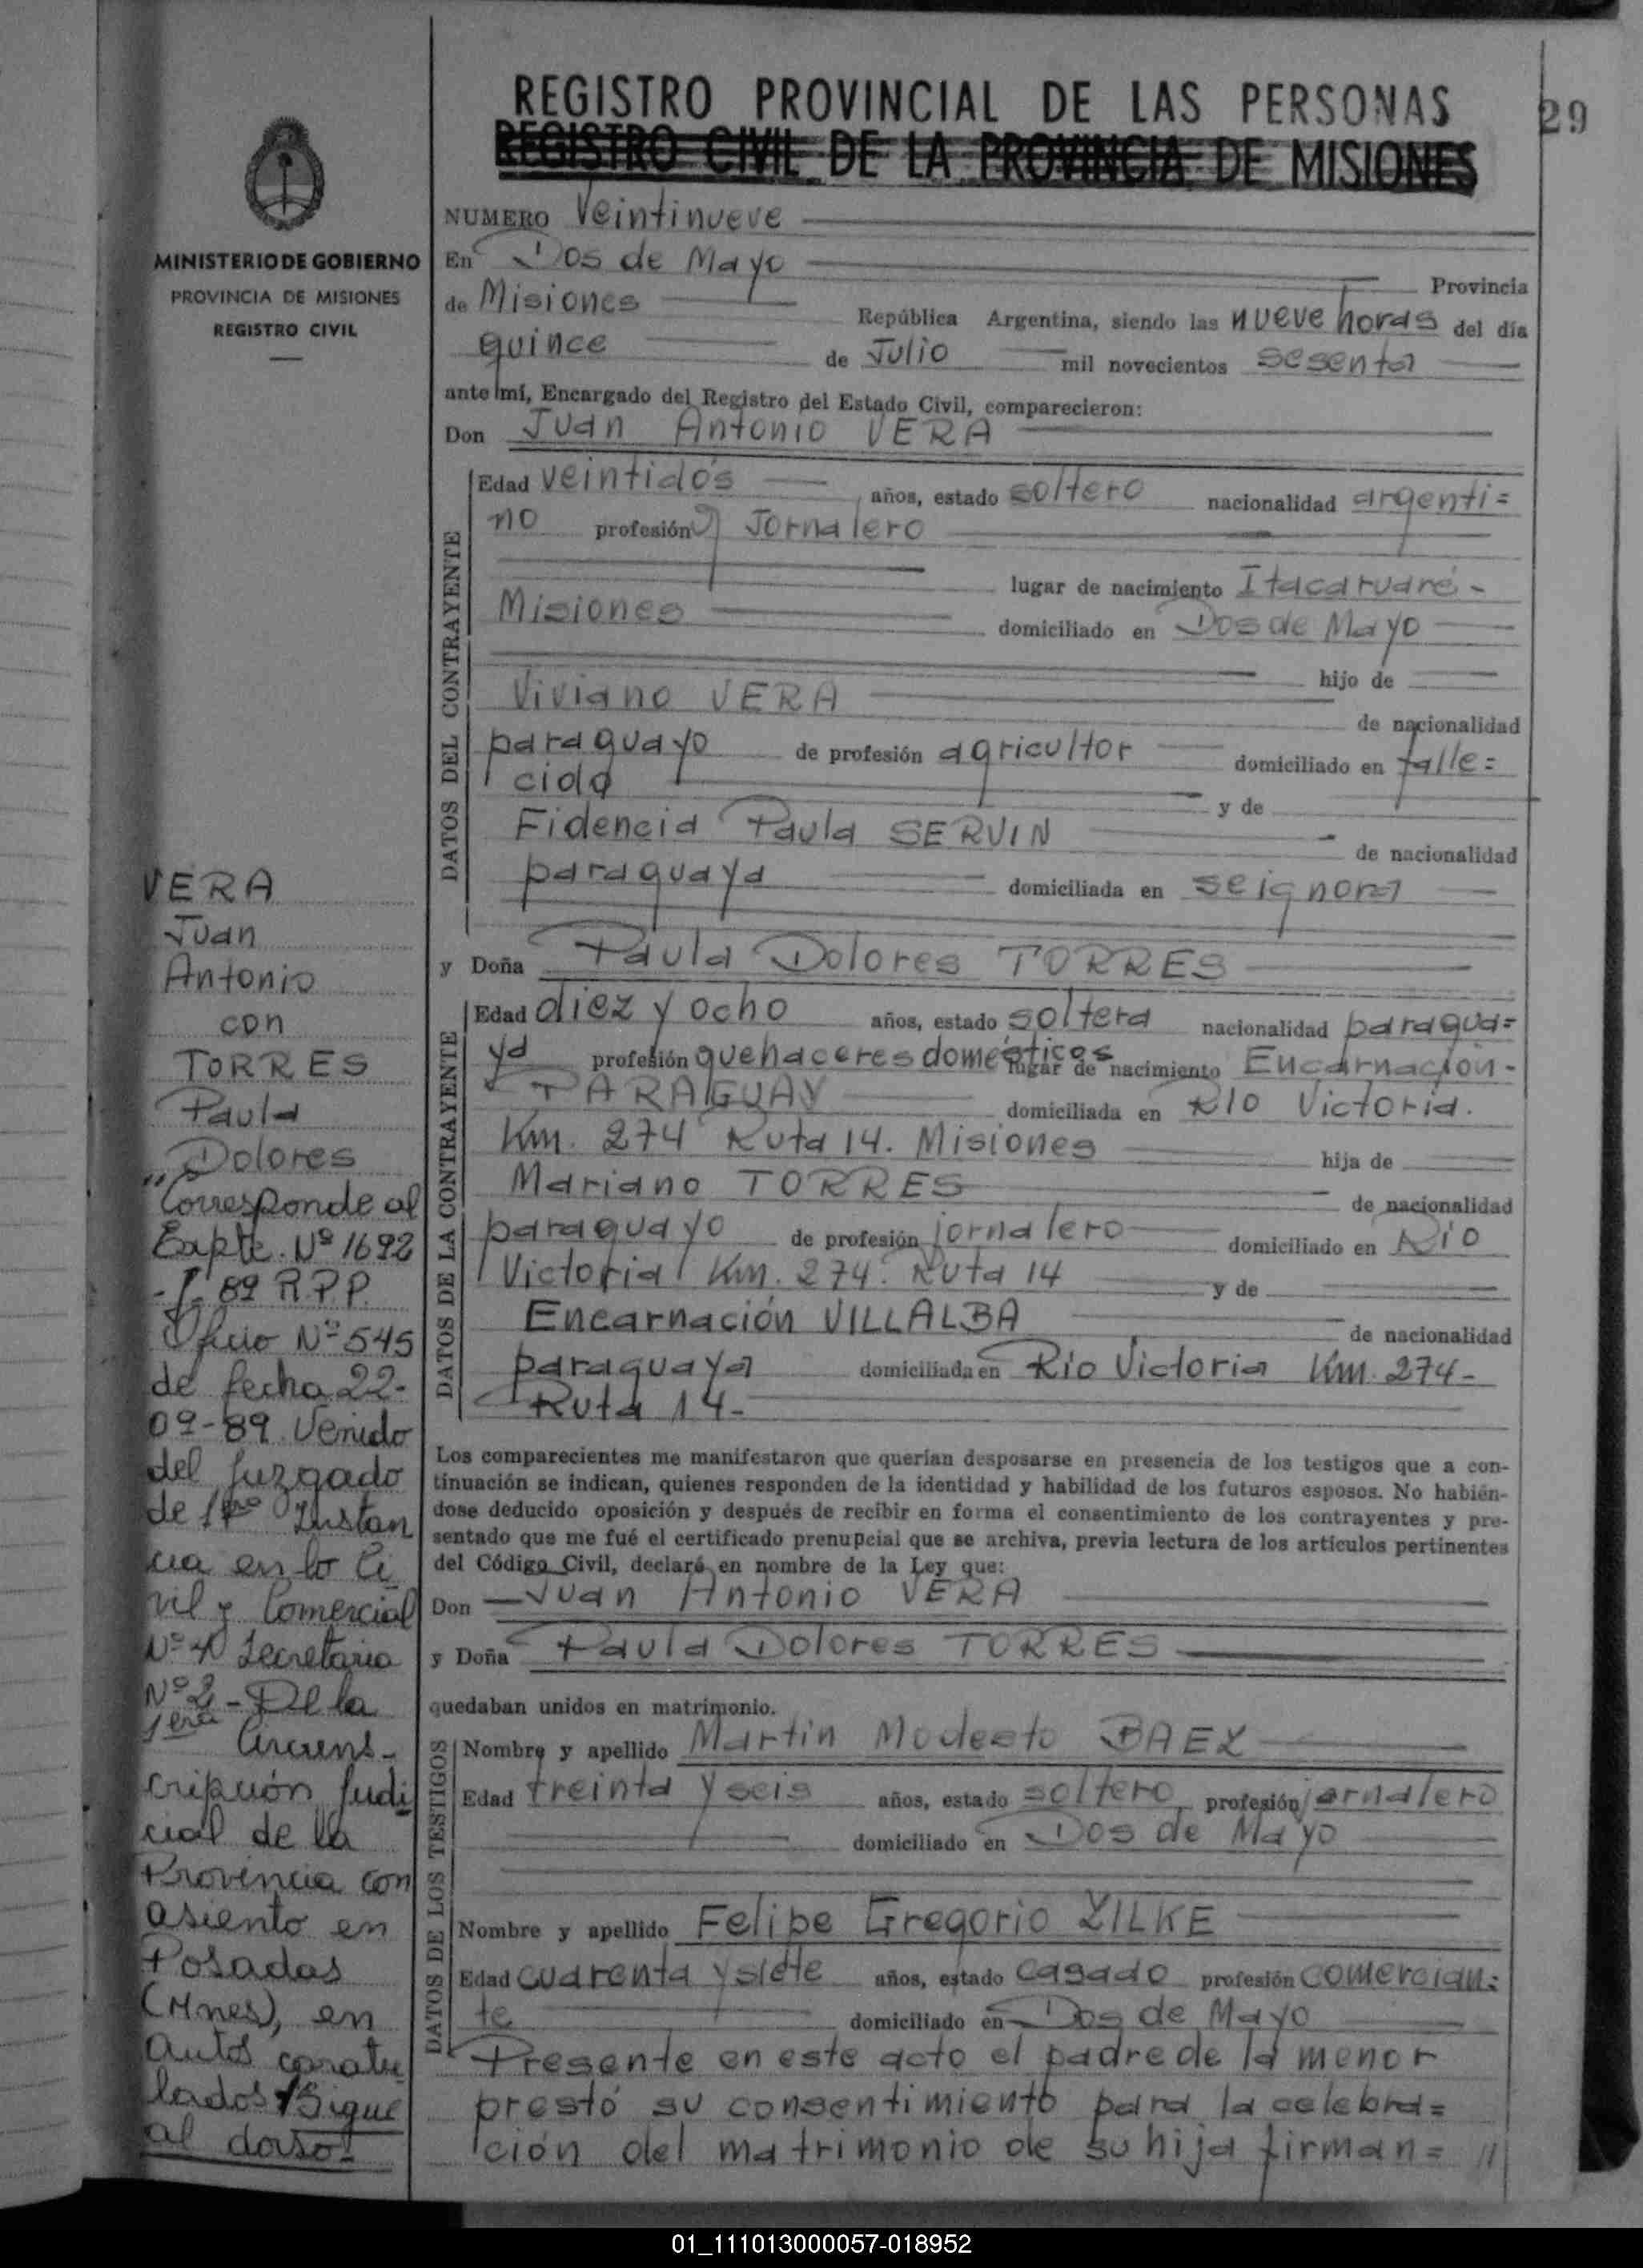 REGISTRO PROVINCIAL DE LAS PERSONAS
29
REGISTRO CIVIL DE LA PROVINCIA DE MISIONES
MINISTERIO DE GOBIERNO
PROVINCIA DE MISIONES
REGISTRO CIVIL
NUMERO Veintinueve
En Dos de Mayo
Provincia
de Misiones República Argentina, siendo las nueve horas del día
quince de Julio mil novecientos sesenta
ante mí, Encargado del Registro del Estado Civil, comparecieron:
Don Juan Antonio VERA
DATOS DEL CONTRAYENTE
Edad veintidós años, estado soltero nacionalidad argenti=
no profesión Jornalero
lugar de nacimiento Itacaruaré -
Misiones domiciliado en Dos de Mayo
hijo de
Viviano VERA
de nacionalidad
paraguayo de profesión agricultor domiciliado en falle=
cido y de
Fidencia Paula SERVIN
de nacionalidad
paraguaya domiciliada en seignora
y Doña Paula Dolores TORRES
DATOS DE LA CONTRAYENTE
Edad diez y ocho años, estado soltera nacionalidad paragua=
ya profesión quehaceres domésticos lugar de nacimiento Encarnación-
PARAGUAY domiciliada en Río Victoria.
Km. 274 Ruta 14. Misiones
hija de
Mariano TORRES
de nacionalidad
paraguayo de profesión jornalero domiciliado en Río
Victoria Km. 274. Ruta 14 y de
Encarnación VILLALBA
de nacionalidad
paraguaya domiciliada en Río Victoria Km. 274-
Ruta 14-
Los comparecientes me manifestaron que querían desposarse en presencia de los testigos que a con-
tinuación se indican, quienes responden de la identidad y habilidad de los futuros esposos. No habién-
dose deducido oposición y después de recibir en forma el consentimiento de los contrayentes y pre-
sentado que me fué el certificado prenupcial que se archiva, previa lectura de los artículos pertinentes
del Código Civil, declaré en nombre de la Ley que:
Don Juan Antonio VERA
y Doña Paula Dolores TORRES
quedaban unidos en matrimonio.
DATOS DE LOS TESTIGOS
Nombre y apellido Martin Modesto BAEZ
Edad treinta y seis años, estado soltero profesión jornalero
domiciliado en Dos de Mayo
Nombre y apellido Felipe Gregorio ZILKE
Edad cuarenta y siete años, estado casado profesión comercian=
te domiciliado en Dos de Mayo
Presente en este acto el padre de la menor
prestó su consentimiento para la celebra=
ción del matrimonio de su hija firman= //
VERA
Juan
Antonio
con
TORRES
Paula
Dolores
"Corresponde al
Expte. Nº 1692
89 R.P.P.
Oficio Nº 545
de fecha 22-
09-89 Venido
del Juzgado
de 1ra Instan
cia en lo Ci
vil y Comercial
Nº 4 Secretaria
Nº 2 - De la
1era Circuns-
cripción Judi
cial de la
Provincia con
asiento en
Posadas
(Mnes), en
autos caratu
lados Sigue
al dorso-
01_111013000057-018952